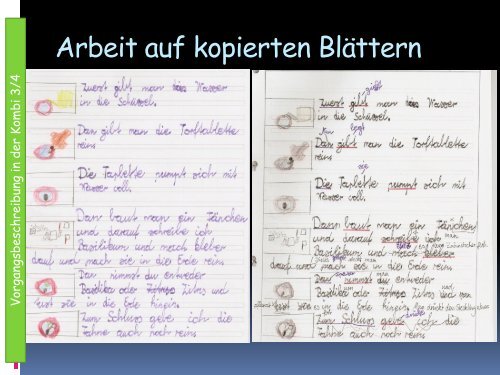 Arbeit auf kopierten Blättern
Vorgangsbeschreibung in der Kombi 3/4
Zuerst gibt man das Wasser
in die Schüssel.
Dan gibt man die Torftablette
rein.
Die Taplette pumpt sich mit
Wasser voll.
Dann baut man ein Fänchen
und darauf schreibe ich
Basilikum und mach kleber
drauf und mach sie in die Erde rein
Dan nimmst du entweder
Basilika oder Zitros und
tust sie in die Erde hinein.
Zum Schluss gebe ich die
Fahne auch noch rein.
gießt
Zuerst gibt man das Wasser
in die Schüssel.
legt
Dan gibt man die Torftablette
rein.
Die Taplette pumpt sich mit
Wasser voll.
Dann baut man ein Fänchen
und darauf schreibe ich
Basilikum und mach kleber
drauf und mach sie in die Erde rein
Dan nimmst du entweder
Basilika oder Zitros und
tust sie in die Erde hinein.
Zum Schluss gebe ich die
Fahne auch noch rein.